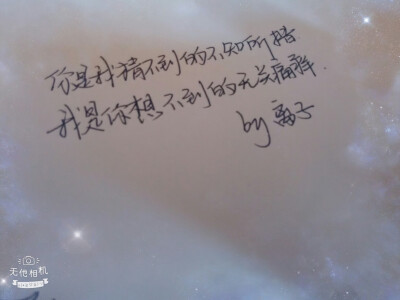 你是我猜不到的不知所措
我是你想不到的无关痛痒.
by 离子
无他相机